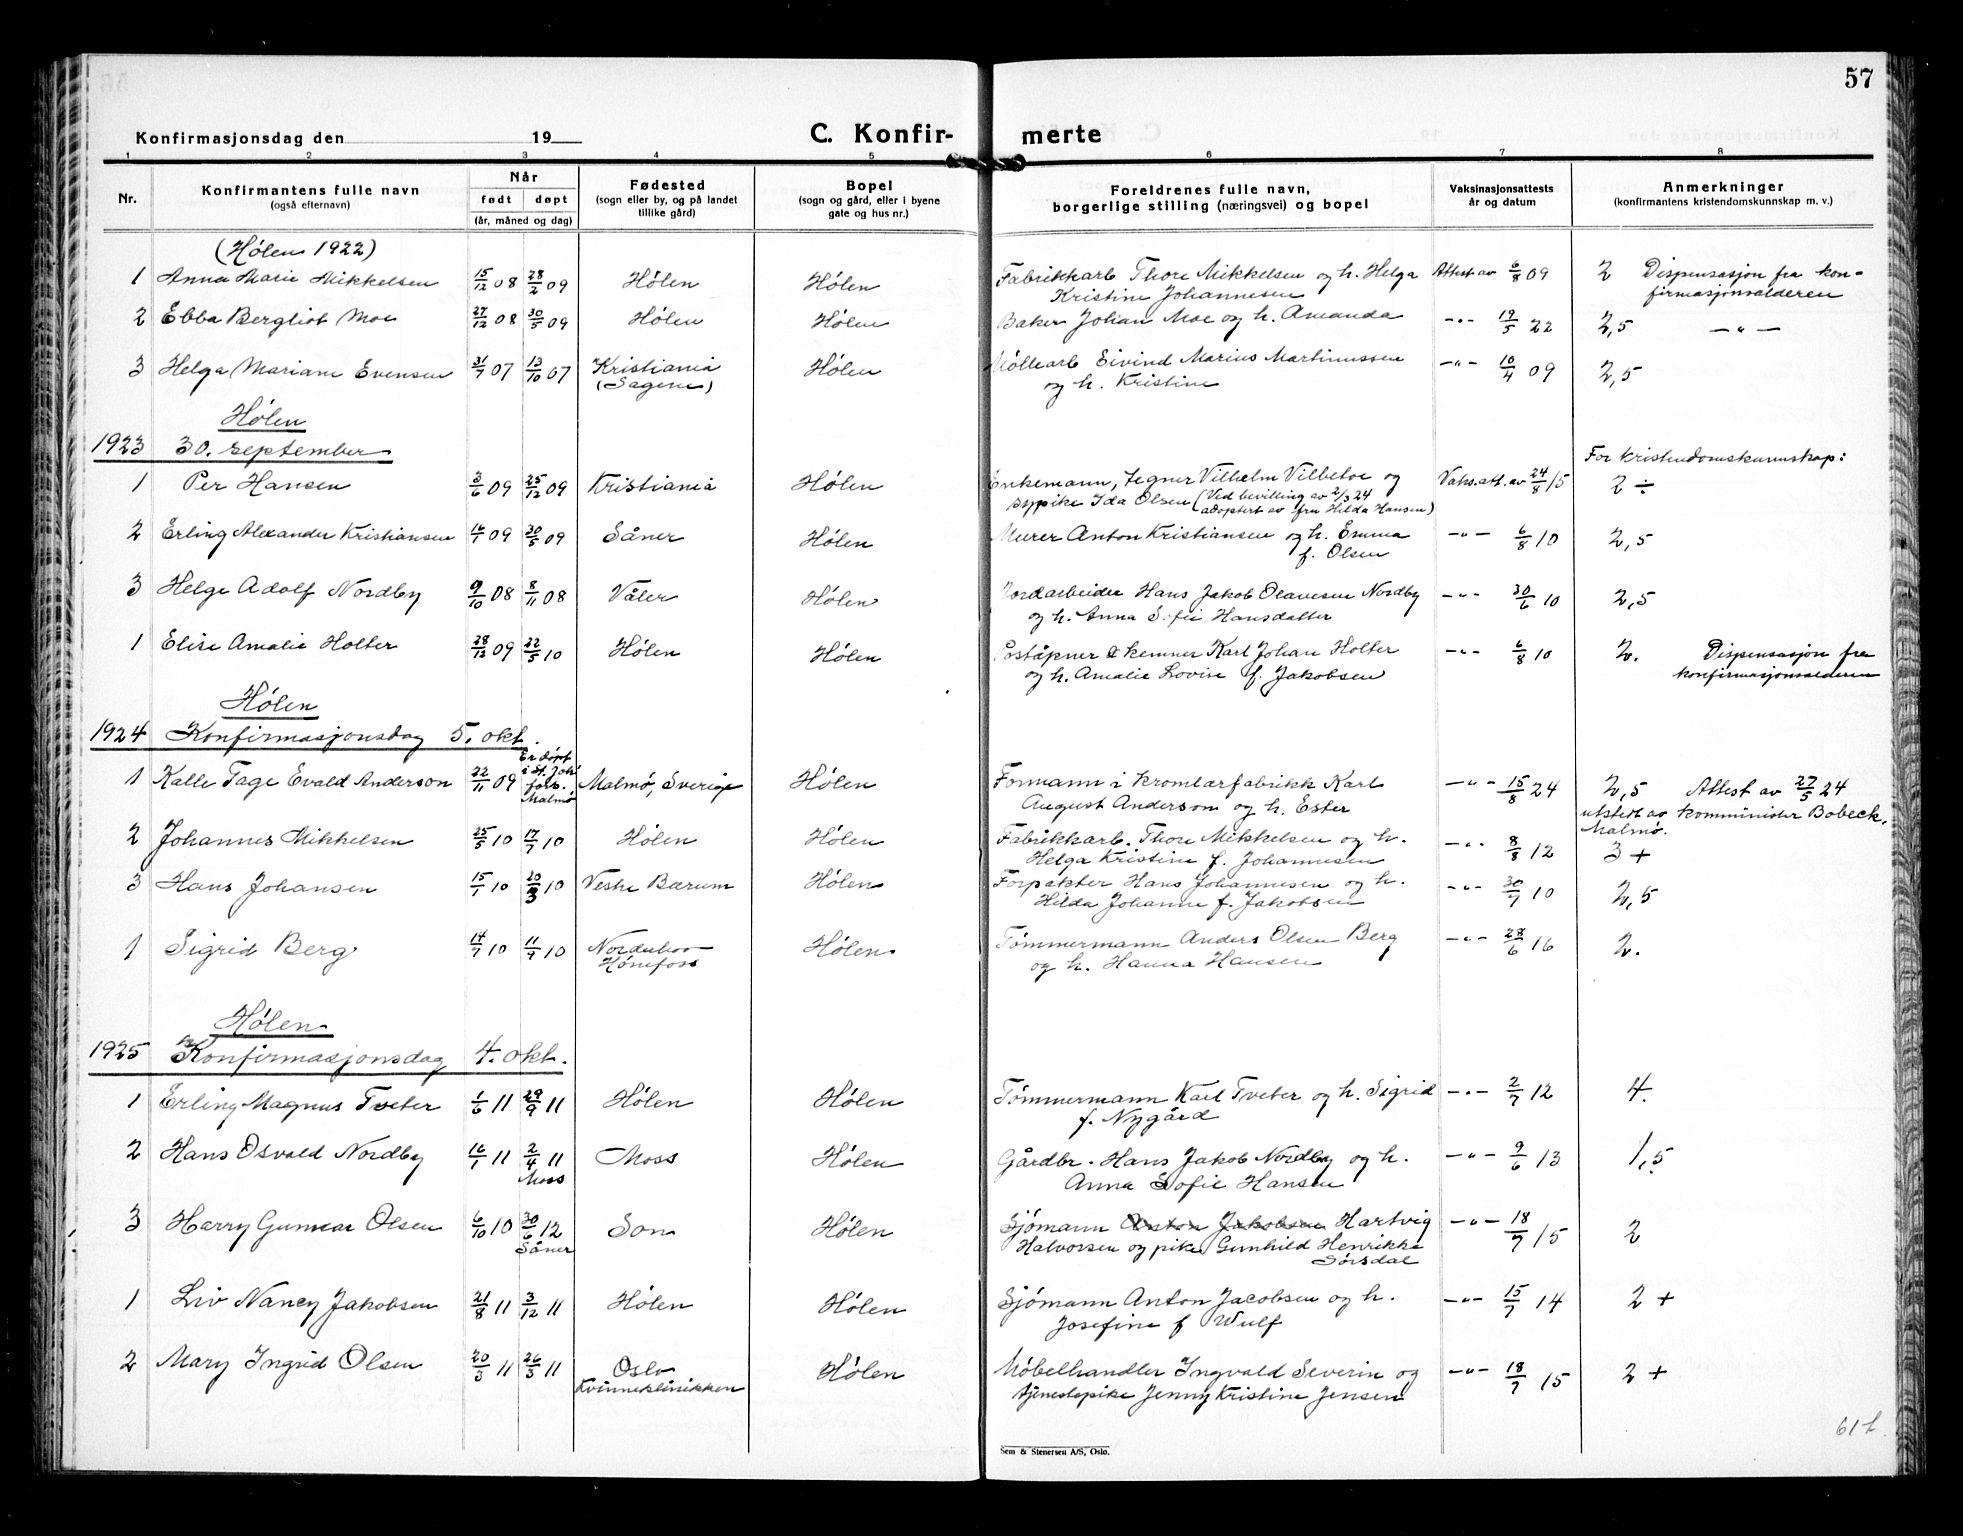 57
Konfirmasjonsdag den 19
C. Konfir- merte
1 2 3 4 5 6 7 8
Nr.
Konfirmantens fulle navn
(også efternavn)
Når
født døpt
(år, måned og dag)
Fødested
(sogn eller by, og på landet
tillike gård)
Bopel
(sogn og gård, eller i byene
gate og hus nr.)
Foreldrenes fulle navn,
borgerlige stilling (næringsvei) og bopel
Vaksinasjonsattests
år og datum
Anmerkninger
(konfirmantens kristendomskunnskap m. v.)
(Hølen 1922)
1 Anna Marie Mikkelsen 15/12 08 28/2 09 Hølen Hølen Fabrikkarb Thore Mikkelsen og h. Helga Attest av 6/8 09 2 Dispensasjon fra kon-
Kristine Johannesen firmasjonsalderen
2 Ebba Bergliot Moe 27/12 08 30/5 09 Hølen Hølen Baker Johan Moe og h. Amanda -"- 19/5 22 2,5 -"-
3 Helga Mariane Evensen 31/7 07 13/10 07 Kristiania Hølen Møllearb Eivind Marius Martinussen -"- 10/4 09 2,5
(Sagene) og h. Kristine
Hølen
1923 30. september
For kristendomskunnskap:
1 Per Hansen 3/6 09 25/12 09 Kristiania Hølen Enkemann, tegner Vilhelm Vilbetoe og Vaks.att. av 24/8 15 2 ÷
sypike Ida Olsen (Ved bevilling av 2/3 24
adoptert av fru Hilda Hansen)
2 Erling Alexander Kristiansen 16/1 09 30/5 09 Såner Hølen Murer Anton Kristiansen og h. Emma -"- 6/8 10 2,5
f. Olsen
3 Helge Adolf Nordby 9/10 08 8/11 08 Våler Hølen Jordarbeider Hans Jakob Olavesen Nordby -"- 30/6 10 2,5
og h. Anna Sofie Hansdatter
1 Elise Amalie Holter 28/12 09 22/5 10 Hølen Hølen Poståpner & kemner Karl Johan Holter -"- 6/8 10 2. Dispensasjon fra
og h. Amalie Lovise f. Jakobsen konfirmasjonsalderen
Hølen
1924 Konfirmasjonsdag 5. okt.
1 Kalle Tage Evald Anderson 22/11 09 Er døpt
i St. Joh
fors.
Malmø Malmø, Sverige Hølen Formann i kromlærfabrikk Karl -"- 15/8 24 2,5 Attest av 27/5 24
August Anderson og h. Ester utstedt av komminister Bobeck,
Malmø.
2 Johannes Mikkelsen 25/5 10 17/7 10 Hølen Hølen Fabrikkarb. Thore Mikkelsen og h. -"- 8/8 12 3 +
Helga Kristine f. Johannesen
3 Hans Johansen 15/1 10 20/3 10 Vestre Bærum Hølen Forpakter Hans Johannesen og h. -"- 30/7 10 2,5
Hilda Johanne f. Jakobsen
1 Sigrid Berg 14/7 10 11/9 10 Norderhov Hølen Tømmermann Anders Olsen Berg -"- 28/6 16 2.
Hønefoss og h. Hanna Hansen
Hølen
1925 Konfirmasjonsdag 4. okt.
1 Erling Magnus Tveter 1/6 11 29/9 11 Hølen Hølen Tømmermann Karl Tveter og h. Sigrid -"- 2/7 12 4.
f. Nygård
2 Hans Osvald Nordby 16/1 11 2/4 11 Moss Hølen Gårdbr. Hans Jakob Nordby og h. -"- 9/6 13 1,5
Moss Anna Sofie Hansen
3 Harry Gunnar Olsen 6/10 10 30/6 12 Son Hølen Sjømann Anton Jakobsen Hartvig -"- 18/7 15 2
Såner Halvorsen og pike Gunhild Henrikke
Sørsdal
1 Liv Nancy Jakobsen 21/8 11 3/12 11 Hølen Hølen Sjømann Anton Jacobsen og h. -"- 15/7 14 2 +
Josefine f Wulf
2 Mary Ingrid Olsen 20/3 11 26/3 11 Oslo Hølen Møbelhandler Ingvald Severin og -"- 18/7 15 2 +
Kvinneklinikken tjenestepike Jenny Kristine Jensen
Sem & Stenersen A/S, Oslo.